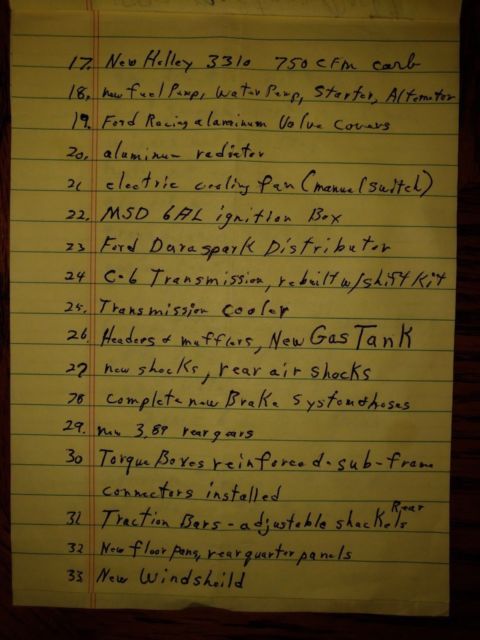 17. New Holley 3310 750 CFM carb
18. new fuel Pump, Water Pump, Starter, Alternator
19. Ford Racing alaminum Valve Covers
20. alaminum radiator
21 electric cooling fan (manual switch)
22. MSD 6AL ignition Box
23 Ford Duraspark Distributor
24 C-6 Transmission, rebuilt w/shift Kit
25. Transmission cooler
26. Headers & mufflers, New Gas Tank
27 new shocks, rear air shocks
28 complete new Brake system & hoses
29. new 3.89 rear gears
30 Torque Boxes reinforced - sub-frame
connectors installed
31 Traction Bars - adjustable shackels Rear
32 New floor pans, rear quarter panels
33 New Windsheild